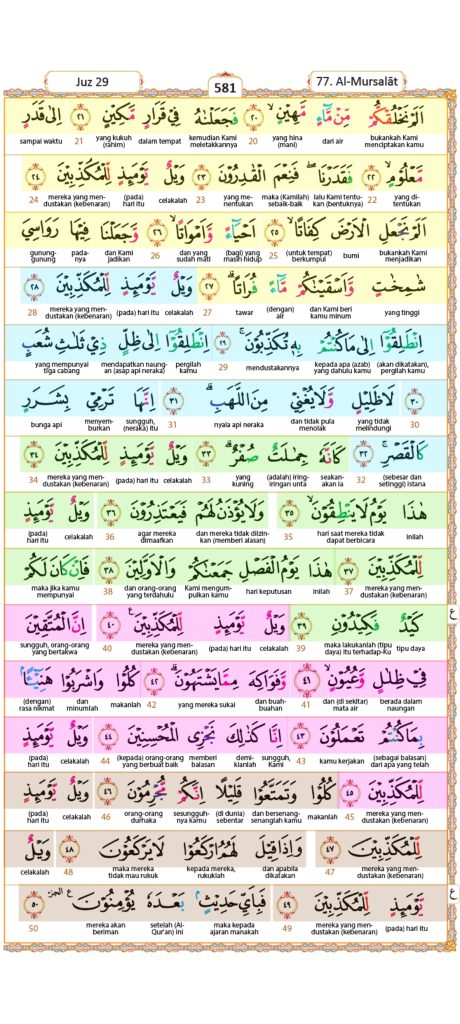 Juz 29
581
77. Al-Mursalāt
اَلَمْ نَخْلُقْكُّمْ مِّنْ مَّاۤءٍ مَّهِيْنٍۙ ٢٠ فَجَعَلْنٰهُ فِيْ قَرَارٍ مَّكِيْنٍ ٢١ اِلٰى قَدَرٍ
bukankah Kami menciptakan kamu dari air yang hina (mani) 20 kemudian Kami meletakkannya dalam tempat yang kukuh (rahim) 21 sampai waktu
مَّعْلُوْمٍۙ ٢٢ فَقَدَرْنَاۖ فَنِعْمَ الْقٰدِرُوْنَ ٢٣ وَيْلٌ يَّوْمَىِٕذٍ لِّلْمُكَذِّبِيْنَ ٢٤
yang di-tentukan 22 lalu Kami tentu-kan (bentuknya) maka (Kamilah) sebaik-baik yang me-nentukan 23 celakalah (pada) hari itu mereka yang men-dustakan (kebenaran) 24
اَلَمْ نَجْعَلِ الْاَرْضَ كِفَاتًاۙ ٢٥ اَحْيَاۤءً وَّاَمْوَاتًاۙ ٢٦ وَّجَعَلْنَا فِيْهَا رَوَاسِيَ
bukankah Kami menjadikan bumi (untuk tempat) berkumpul 25 (bagi) yang masih hidup dan yang sudah mati 26 dan Kami jadikan pada-nya gunung-gunung
شٰمِخٰتٍ وَّاَسْقَيْنٰكُمْ مَّاۤءً فُرَاتًاۗ ٢٧ وَيْلٌ يَّوْمَىِٕذٍ لِّلْمُكَذِّبِيْنَ ٢٨
yang tinggi dan Kami beri kamu minum (dengan) air tawar 27 celakalah (pada) hari itu mereka yang men-dustakan (kebenaran) 28
اِنْطَلِقُوْٓا اِلٰى مَا كُنْتُمْ بِهٖ تُكَذِّبُوْنَۚ ٢٩ اِنْطَلِقُوْٓا اِلٰى ظِلٍّ ذِيْ ثَلٰثِ شُعَبٍ
(akan dikatakan), pergilah kamu kepada apa (azab) yang dahulu kamu mendustakannya 29 pergilah kamu mendapatkan naung-an (asap api neraka) yang mempunyai tiga cabang
٣٠ لَا ظَلِيْلٍ وَّلَا يُغْنِيْ مِنَ اللَّهَبِۗ ٣١ اِنَّهَا تَرْمِيْ بِشَرَرٍ
30 yang tidak melindungi dan tidak pula menolak nyala api neraka 31 sungguh, (neraka) itu menyem-burkan bunga api
كَالْقَصْرِۚ ٣٢ كَاَنَّهٗ جِمٰلَتٌ صُفْرٌۗ ٣٣ وَيْلٌ يَّوْمَىِٕذٍ لِّلْمُكَذِّبِيْنَ ٣٤
(sebesar dan setinggi) istana 32 seakan-akan ia (adalah) iring-iringan unta yang kuning 33 celakalah (pada) hari itu mereka yang men-dustakan (kebenaran) 34
هٰذَا يَوْمُ لَا يَنْطِقُوْنَۙ ٣٥ وَلَا يُؤْذَنُ لَهُمْ فَيَعْتَذِرُوْنَ ٣٦ وَيْلٌ يَّوْمَىِٕذٍ
inilah hari saat mereka tidak dapat berbicara 35 dan mereka tidak diizin-kan (memberi alasan) agar mereka dimaafkan 36 celakalah (pada) hari itu
لِّلْمُكَذِّبِيْنَ ٣٧ هٰذَا يَوْمُ الْفَصْلِ جَمَعْنٰكُمْ وَالْاَوَّلِيْنَ ٣٨ فَاِنْ كَانَ لَكُمْ
mereka yang men-dustakan (kebenaran) 37 inilah hari keputusan Kami mengum-pulkan kamu dan orang-orang yang terdahulu 38 maka jika kamu mempunyai
كَيْدٌ فَكِيْدُوْنِ ٣٩ وَيْلٌ يَّوْمَىِٕذٍ لِّلْمُكَذِّبِيْنَ ٤٠ اِنَّ الْمُتَّقِيْنَ ع
tipu daya maka lakukanlah (tipu daya) itu terhadap-Ku 39 celakalah (pada) hari itu mereka yang men-dustakan (kebenaran) 40 sungguh, orang-orang yang bertakwa
فِيْ ظِلٰلٍ وَّعُيُوْنٍۙ ٤١ وَّفَوَاكِهَ مِمَّا يَشْتَهُوْنَۗ ٤٢ كُلُوْا وَاشْرَبُوْا هَنِيْۤـًٔا
berada dalam naungan dan (di sekitar) mata air 41 dan buah-buahan yang mereka sukai 42 makanlah dan minumlah (dengan) rasa nikmat
بِمَا كُنْتُمْ تَعْمَلُوْنَ ٤٣ اِنَّا كَذٰلِكَ نَجْزِى الْمُحْسِنِيْنَ ٤٤ وَيْلٌ يَّوْمَىِٕذٍ
(sebagai balasan) dari apa yang telah kamu kerjakan 43 sungguh, Kami demi-kianlah memberi balasan (kepada) orang-orang yang berbuat baik 44 celakalah (pada) hari itu
لِّلْمُكَذِّبِيْنَ ٤٥ كُلُوْا وَتَمَتَّعُوْا قَلِيْلًا اِنَّكُمْ مُّجْرِمُوْنَ ٤٦ وَيْلٌ يَّوْمَىِٕذٍ
mereka yang men-dustakan (kebenaran) 45 makanlah dan bersenang-senanglah kamu (di dunia) sebentar sesungguh-nya kamu orang-orang durhaka 46 celakalah (pada) hari itu
لِّلْمُكَذِّبِيْنَ ٤٧ وَاِذَا قِيْلَ لَهُمُ ارْكَعُوْا لَا يَرْكَعُوْنَ ٤٨ وَيْلٌ
mereka yang men-dustakan (kebenaran) 47 dan apabila dikatakan kepada mereka, rukuklah maka mereka tidak mau rukuk 48 celakalah
يَّوْمَىِٕذٍ لِّلْمُكَذِّبِيْنَ ٤٩ فَبِاَيِّ حَدِيْثٍۢ بَعْدَهٗ يُؤْمِنُوْنَ ࣖ الجزء ٥٠ ع
(pada) hari itu mereka yang men-dustakan (kebenaran) 49 maka kepada ajaran manakah setelah (Al-Qur'an) ini mereka akan beriman 50